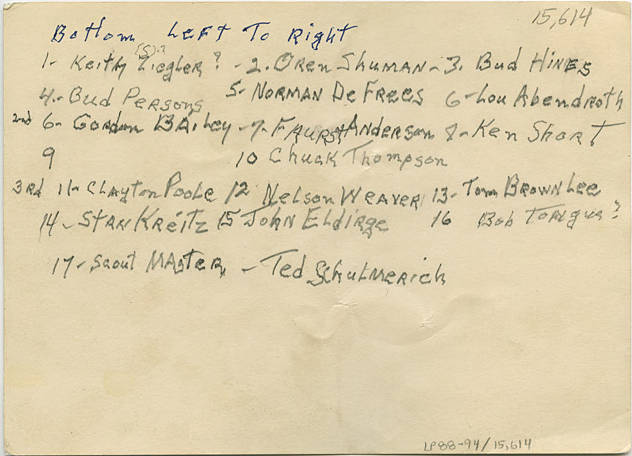 15,614
Bottom Left To Right
(S)?
1- Keith Ziegler? - 2. Oren Shuman - 3. Bud Hines
4.- Bud Persons 5- Norman DeFrees 6- Lou Abendroth
2nd 6- Gordon Bailey - 7- Anderson 8- Ken Short
9 10 Chuck Thompson
3rd 11- Clayton Poole 12 Nelson Weaver 13- Tom BrownLee
14- Stan Kreitz 15 John Eldirge 16 Bob ?
17- Scout Master - Ted Schulmerich
LP88-94/15,614